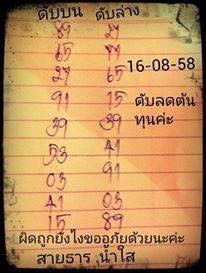 ดับบน ดับล่าง
39 27
65 77
27 65
91 15
39 39
53 41
03 91
41 03
15 89
16-08-58
ดับลดต้น
ทุนค่ะ
ผิดถูกยังไงขออภัยด้วยนะค่ะ
สายธาร น้ำใส